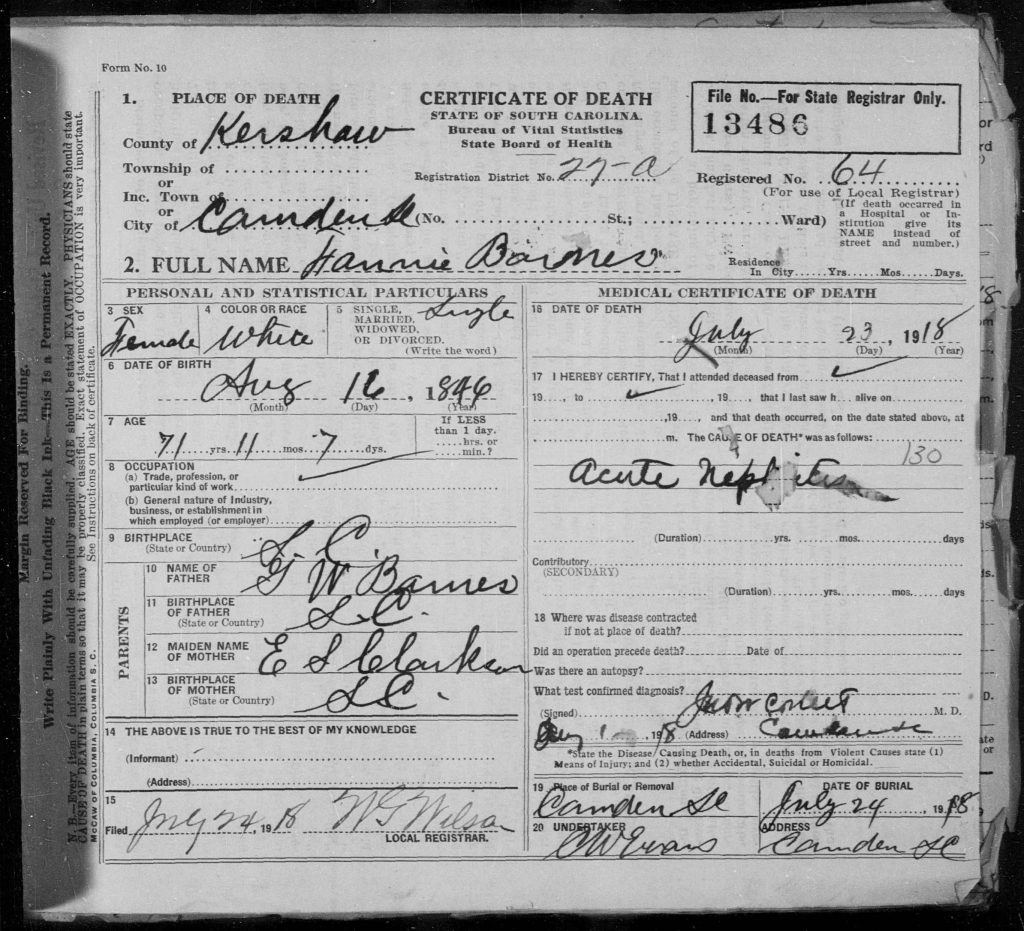 Form No. 10
1. PLACE OF DEATH
County of Kershaw
Township of
or
Inc. Town of
or
City of Camden SC (No. St.; Ward)
CERTIFICATE OF DEATH
STATE OF SOUTH CAROLINA.
Bureau of Vital Statistics
State Board of Health
Registration District No. 27-A
File No.—For State Registrar Only.
13486
Registered No. 64
(For use of Local Registrar)
(If death occurred in
a Hospital or In-
stitution give its
NAME instead of
street and number.)
2. FULL NAME Fannie Barnes
Residence
In City Yrs. Mos. Days.
PERSONAL AND STATISTICAL PARTICULARS
3 SEX
Female
4 COLOR OR RACE
White
5 SINGLE,
MARRIED,
WIDOWED,
OR DIVORCED.
(Write the word)
Single
6 DATE OF BIRTH
Aug 16, 1846
(Month) (Day) (Year)
7 AGE
71 yrs. 11 mos. 7 dys.
If LESS
than 1 day.
hrs. or
min.?
8 OCCUPATION
(a) Trade, profession, or
particular kind of work
(b) General nature of Industry,
business, or establishment in
which employed (or employer)
9 BIRTHPLACE
(State or Country)
S. C.
PARENTS
10 NAME OF
FATHER
G W Barnes
11 BIRTHPLACE
OF FATHER
(State or Country)
S. C.
12 MAIDEN NAME
OF MOTHER
E S Clarkson
13 BIRTHPLACE
OF MOTHER
(State or Country)
S C.
14 THE ABOVE IS TRUE TO THE BEST OF MY KNOWLEDGE
(Informant)
(Address)
15
Filed July 24, 1918 W G Wilson
LOCAL REGISTRAR.
MEDICAL CERTIFICATE OF DEATH
16 DATE OF DEATH
July 23, 1918
(Month) (Day) (Year)
17 I HEREBY CERTIFY, That I attended deceased from
19, to, 19, that I last saw h alive on
,19, and that death occurred, on the date stated above, at
m. The CAUSE OF DEATH* was as follows:
130
Acute Nephritis
(Duration) yrs. mos. days
Contributory
(SECONDARY)
(Duration) yrs. mos. days
18 Where was disease contracted
if not at place of death?
Did an operation precede death? Date of
Was there an autopsy?
What test confirmed diagnosis?
(Signed) M. D.
(Address) Camden SC
*State the Disease Causing Death, or, in deaths from Violent Causes state (1)
Means of Injury; and (2) whether Accidental, Suicidal or Homicidal.
19 Place of Burial or Removal
Camden SC
DATE OF BURIAL
July 24 1918
20 UNDERTAKER
C W Evans
ADDRESS
Camden SC
Margin Reserved For Binding.
Write Plainly With Unfading Black Ink—This Is a Permanent Record.
N. B.—Every item of information should be carefully supplied. AGE should be stated EXACTLY. PHYSICIANS should state
CAUSE OF DEATH in plain terms so that it may be properly classified. Exact statement of OCCUPATION is very important.
See Instructions on back of certificate.
McCAW OF COLUMBIA, COLUMBIA S. C.